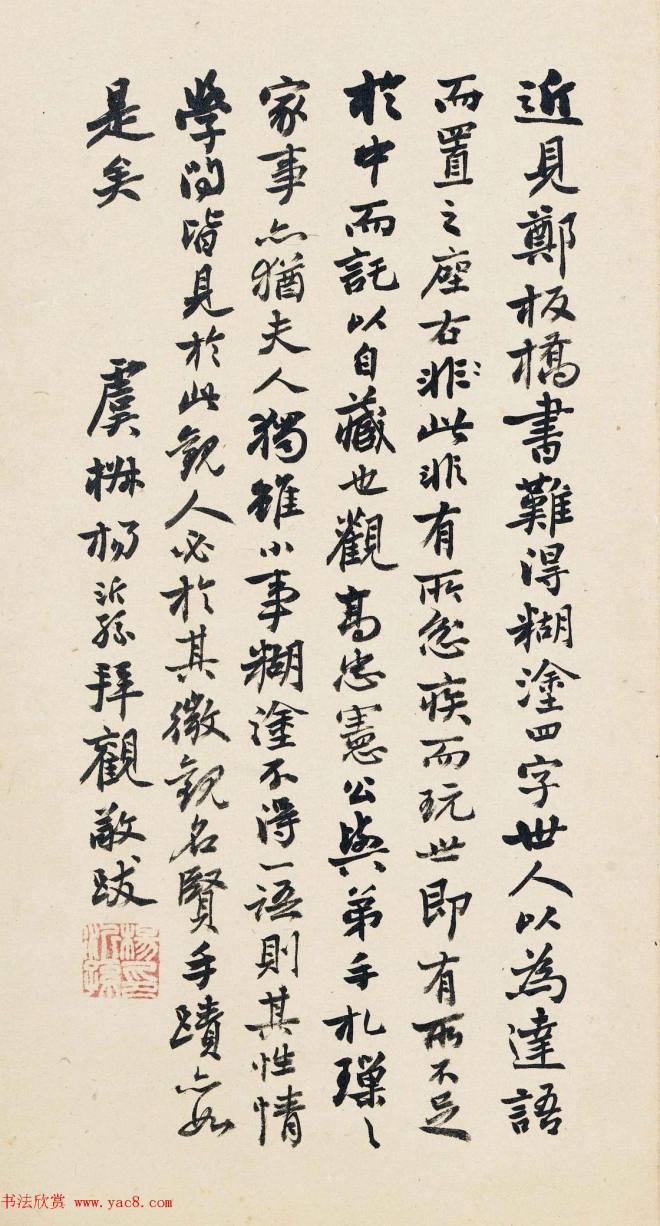 近見鄭板橋書難得糊塗四字世人以為達語
而置之座右非〻此非有所忿疾而玩世即有所不足
於中而託以自藏也觀高忠憲公與弟手札瑣〻
家事亦猶夫人獨雖小事糊塗不得一語則其性情
學問皆見於此觀人必於其微觀名賢手蹟亦如
是矣
虞楙楊沂孫拜觀敬跋
楊沂孫印
书法欣赏 www.yac8.com